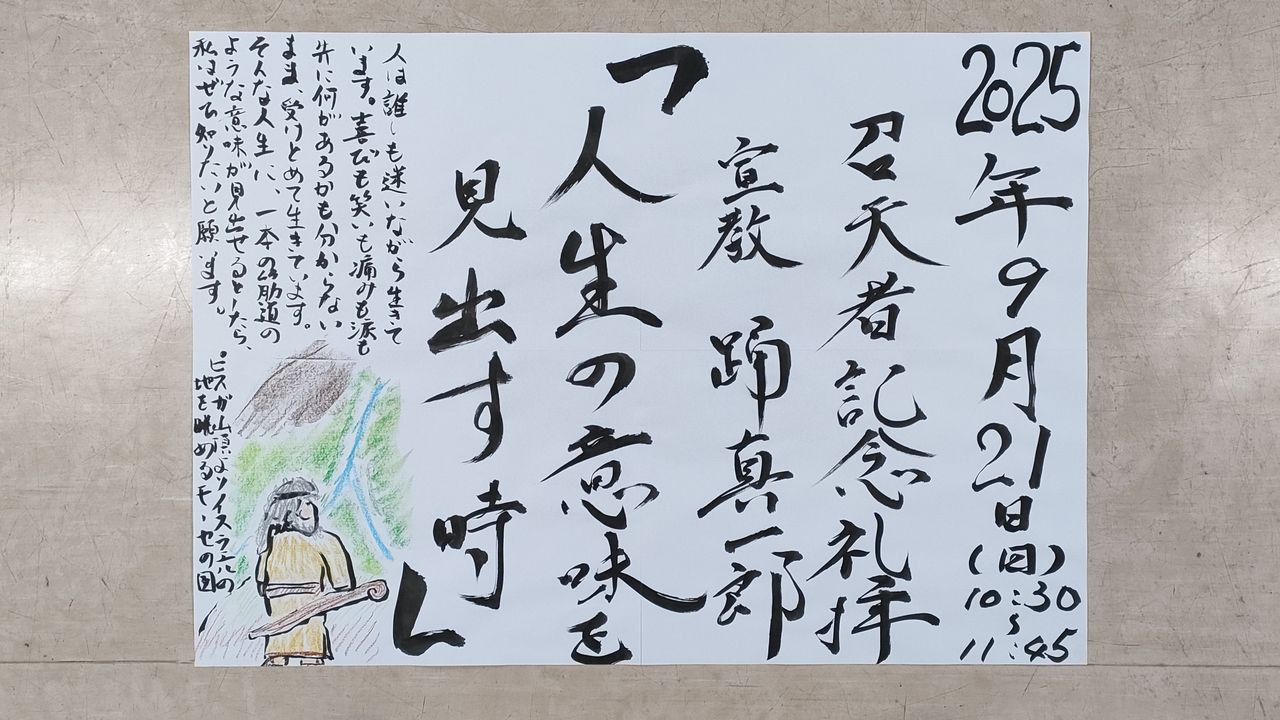 2025年9月21日(日)
10:30
〜
11:45
召天者記念礼拝
宣教 踊真一郎
「人生の意味を
見出す時」
人は誰しも迷いながら生きて
います。喜びも笑いも痛みも涙も
先に何があるかも分からない
まま、受けとめて生きています。
そんな人生に、一本の筋道の
ような意味が見出せるとしたら、
私はぜひ知りたいと願います。
ピスガ山頂よりイスラエルの
地を眺めるモーセの図